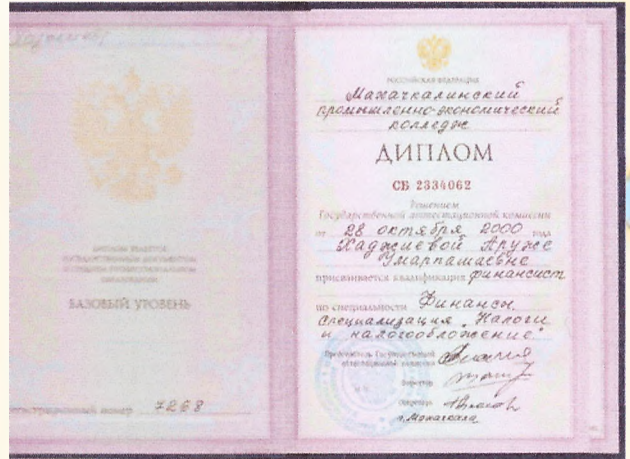 ДИПЛОМ ЯВЛЯЕТСЯ
ГОСУДАРСТВЕННЫМ ДОКУМЕНТОМ
О СРЕДНЕМ ПРОФЕССИОНАЛЬНОМ
ОБРАЗОВАНИИ
БАЗОВЫЙ УРОВЕНЬ
Регистрационный номер 7268
РОССИЙСКАЯ ФЕДЕРАЦИЯ
Махачкалинский
промышленно-экономический
колледж
ДИПЛОМ
СБ 2334062
Решением
Государственной аттестационной комиссии
от 28 октября 2000 года
Хаджиевой Аруже
Умарпашаевне
присваивается квалификация финансист
по специальности Финансы,
специализация "Налоги
и налогообложение"
Председатель Государственной
аттестационной комиссии
Директор
Секретарь
г. Махачкала